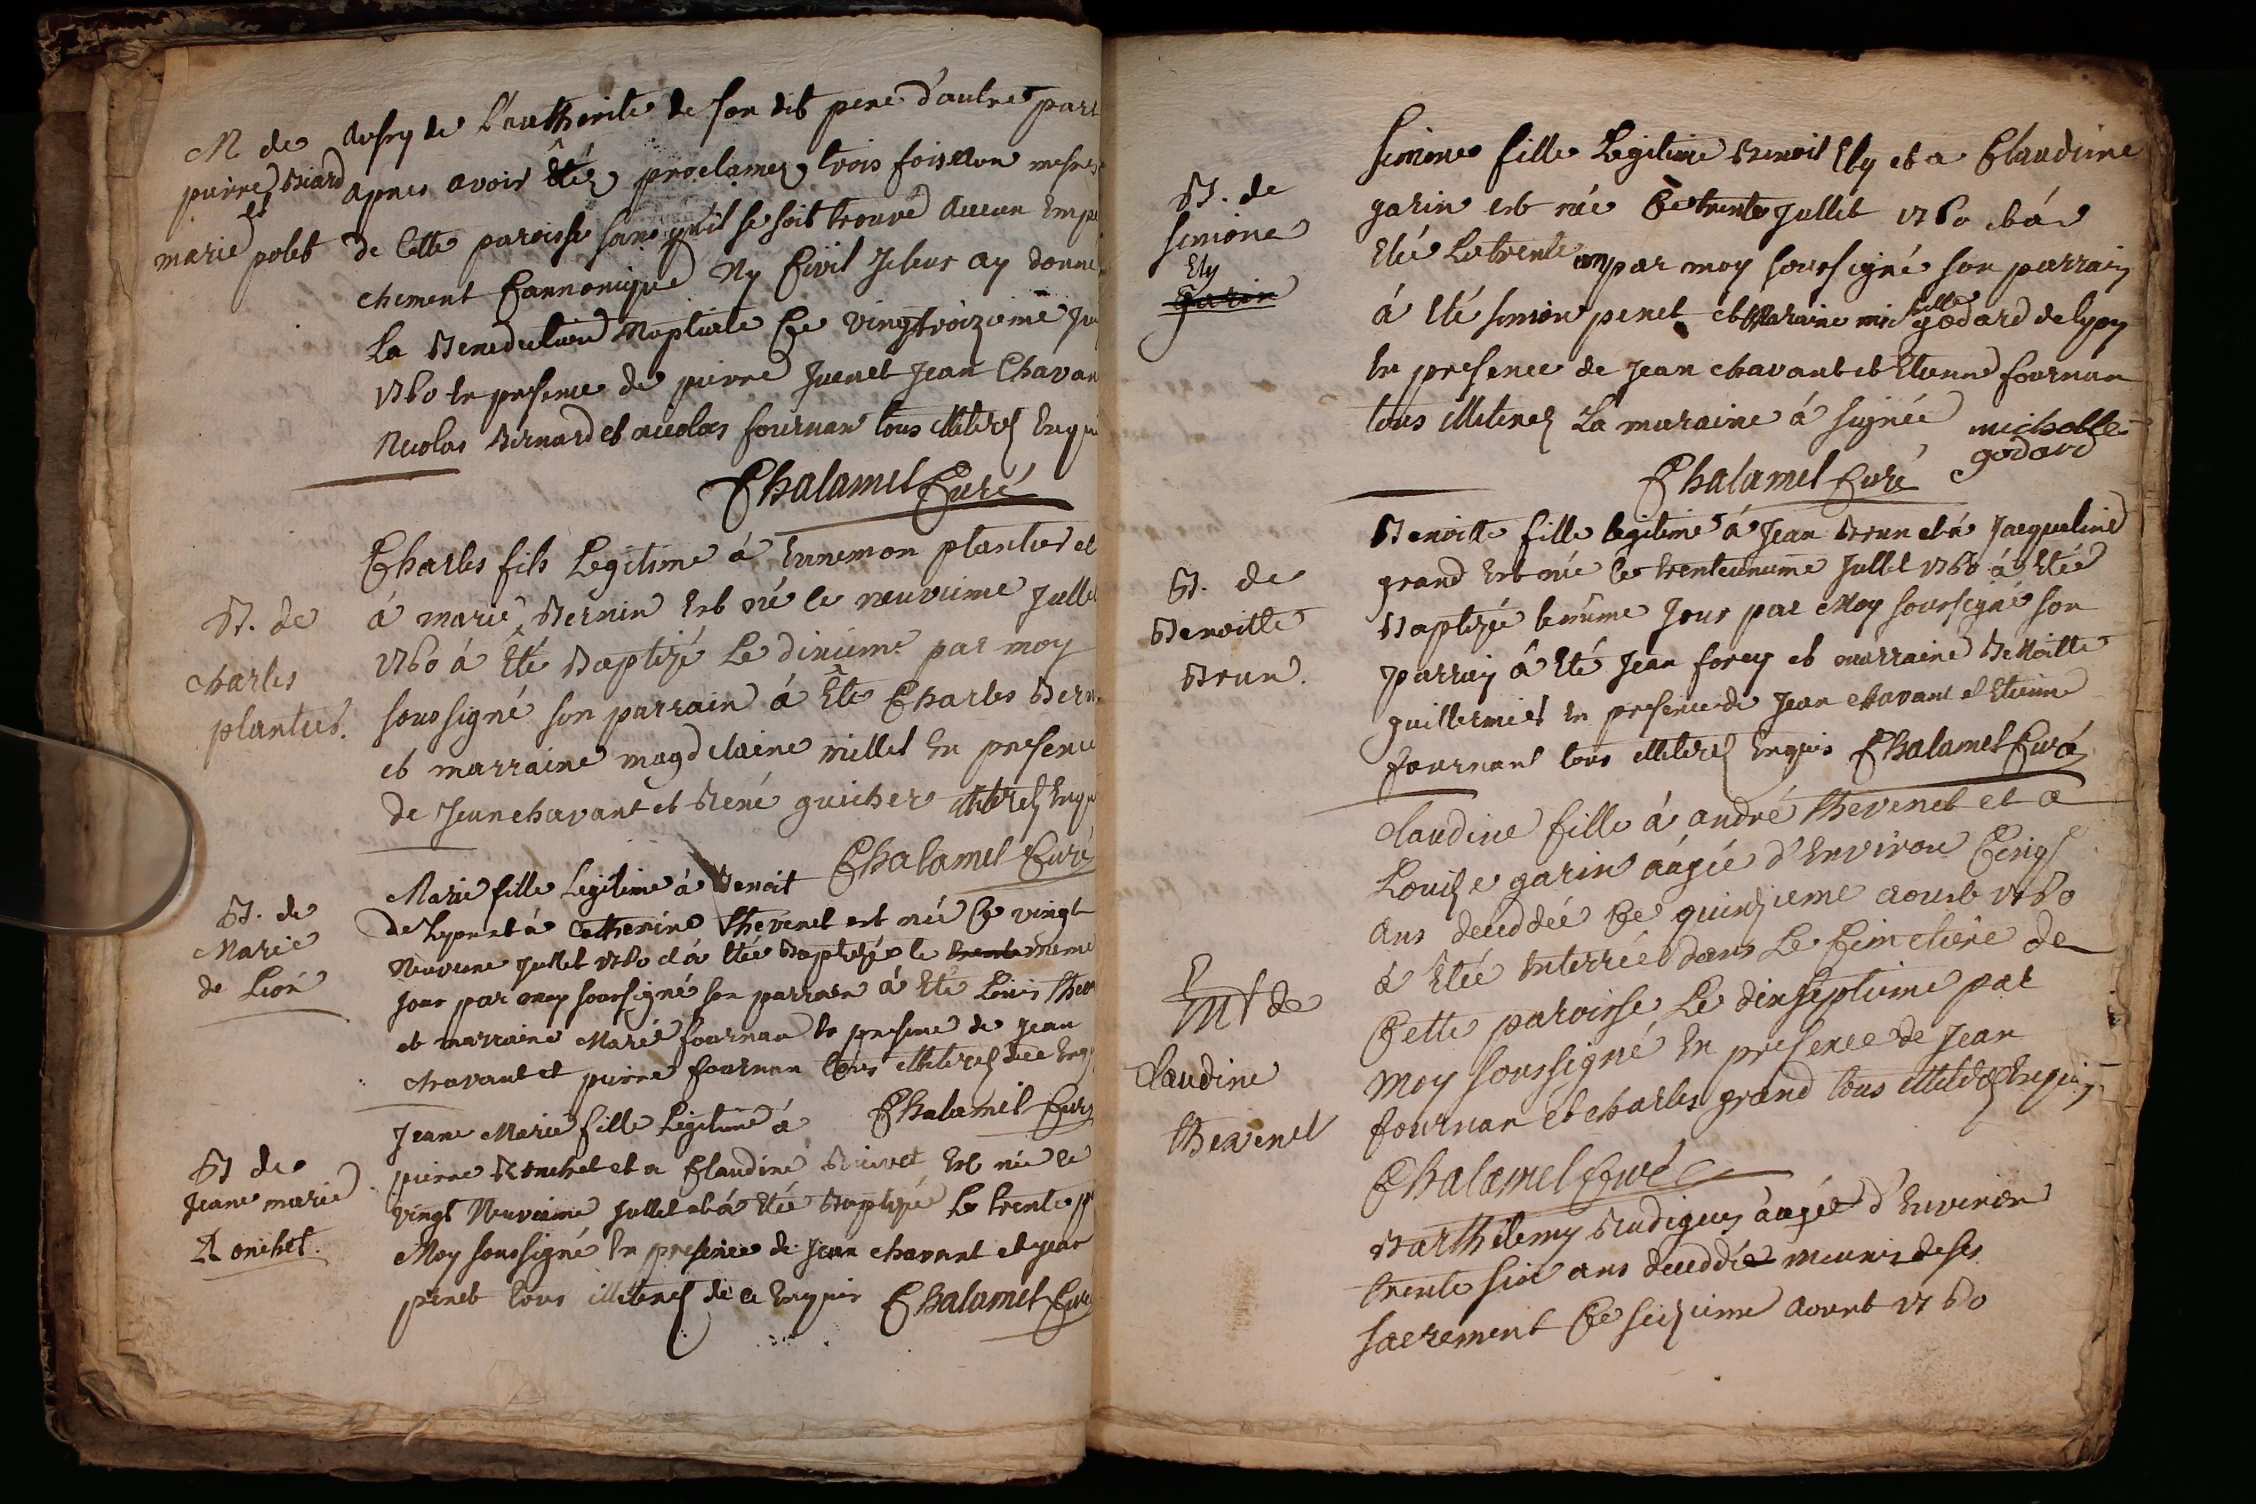 M de
pierre Biard
et
marie polet
de L'authorité de son dit pere d'autre part
apres avoir Étéz proclamez trois fois
de Cette paroisse sans qu'il se soit trouvé aucun Empe
chement Cannonique Ny Civil Je leur ay donné
La Benediction Nuptiale Ce vingtroizieme Ju
1760 En presence de pierre Juenet Jean Chavan
Nicolas Bernard et nicolas fournan tous illiterez Enqu
Chalamel Curé
B. de
charles
plantier.
Charles fils Legitime à Ennemon plantier et
à marie Bernin Est né le neuvieme Juillet
1760 à Été Baptizé Le dixieme par moy
soussigné son parrain à Été Charles Bern
et marraine magdelaine millet En presence
de Jean chavant et René guicher illiterez Enqu
Chalamel Curé
B. de
Marie
de Lion
Marie fille Legitime à Benoit
de Lyon et à Catherine thevenet est née Ce vingt
Neuvieme Juillet 1760 et à Étée Baptizée le trente meme
Jour par moy soussigné son parrain à Été Louis thev
et marraine Marie fournan En presence de Jean
chavant et pierre fournan tous illiterez de ce Enq
Chalamel Curé
B de
Jeane marie
Ronchet.
Jeane Marie fille Legitime à
pierre Ronchet et a Claudine Est née le
vingt Neuvieme Juillet et à Étée Baptizée Le trente p
Moy soussigné En presence de Jean chavant et Jean
penet tous illiterez de ce Enquis Chalamel Curé
B. de
simone
Ely
garin
simone fille Legitime Benoit Ely et a Claudine
garin est née Ce trente Juillet 1760 et à
Etée Le trente un par moy soussigné son parrain
à Été simon penet et Maraine michelle godard de lyon
En presence de Jean chavant et Etienne fournan
tous illiterez La maraine à signée michelle
godard
Chalamel Curé
B. de
Benoitte
Brun.
Benoitte fille legitime à Jean Brun et à Jacqueline
grand Est née le trenteunieme Juillet 1760 à Etée
Baptizée le même Jour par Moy soussigné son
parrain à Eté Jean forey et marraine Benoitte
guillermier En presence de Jean chavant et Etienne
fournant tous illiterez Enquis Chalamel Curé
Ent de
Claudine
thevenet
Claudine fille à andré thevenet et a
Louize garin âagée d'Environ Cinq
Ans deceddée Ce quinzieme aoust 1760
à Etée Enterrée dans Le Cimetiere de
Cette paroisse Le dixseptieme par
Moy soussigné En presence de Jean
fournan et charles grand tous illiterez Enquis
Chalamel Curé
Barthelemy âagée d'Environ
trente six ans deceddé munis de ses
sacrement Ce seizieme aoust 1760